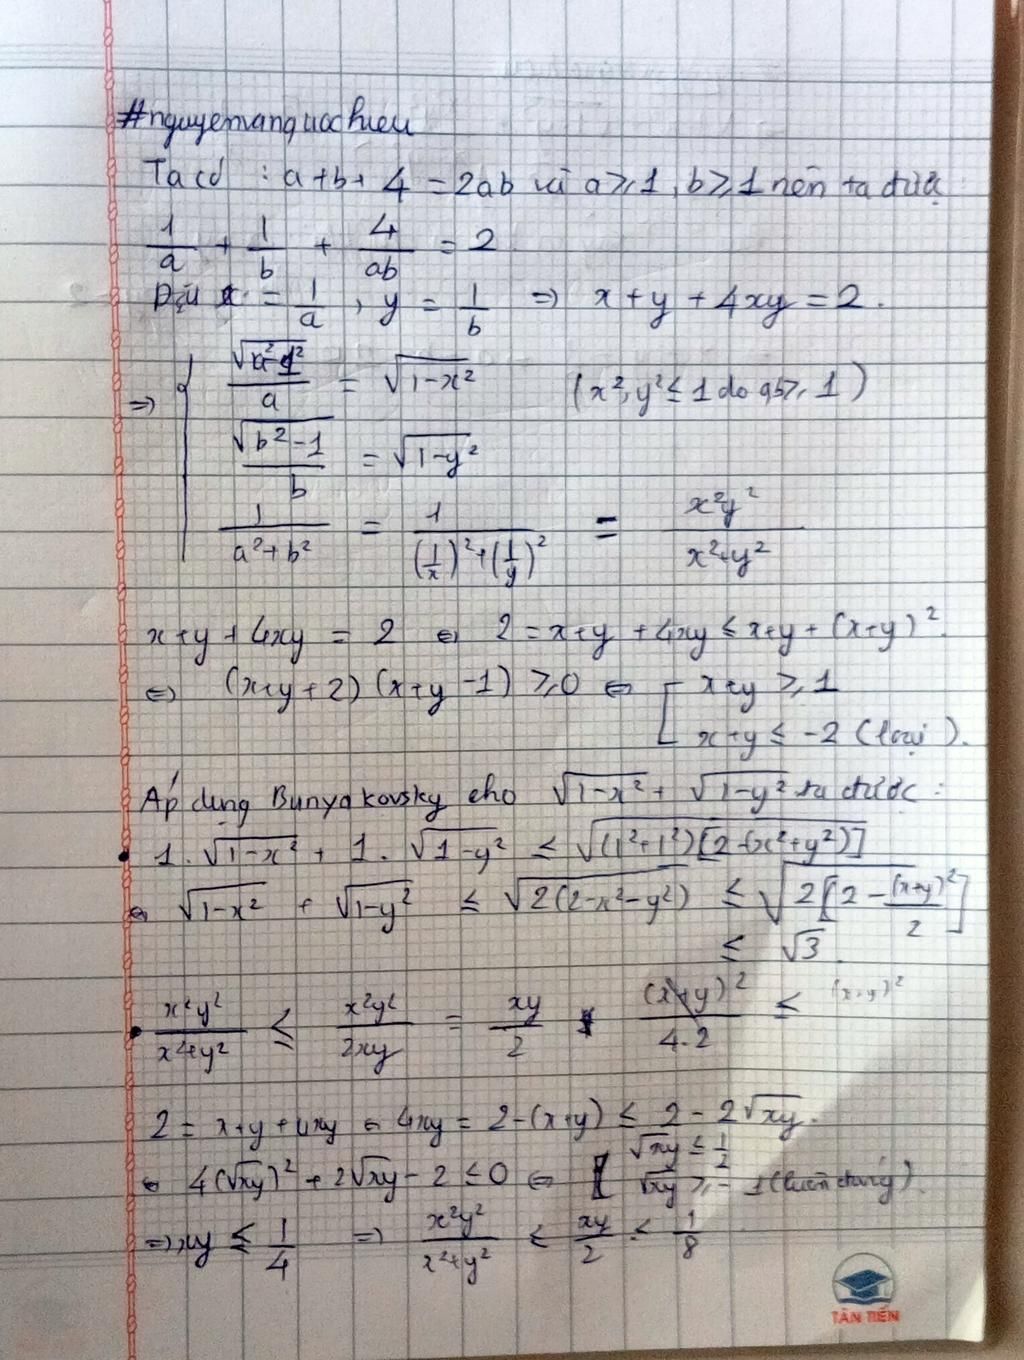 #nguyenvanquochieu
Ta có : a+b+4 = 2ab và a ≥ 1, b ≥ 1 nên ta được
1/a + 1/b + 4/ab = 2
Đặt x = 1/a , y = 1/b ⇒ x+y+4xy = 2.
⇒ { √(a²-1²)/a = √(1-x²) (x²,y² ≤ 1 do a,b ≥ 1)
√(b²-1)/b = √(1-y²)
1/(a²+b²) = 1/((1/x)²+(1/y)²) = x²y²/(x²+y²)
x+y+4xy = 2 ⇔ 2 = x+y+4xy ≤ x+y+(x+y)²
⇔ (x+y+2)(x+y-1) ≥ 0 ⇔ [ x+y ≥ 1
x+y ≤ -2 (loại).
Áp dụng Bunyakovsky cho √(1-x²) + √(1-y²) ta được :
• 1.√(1-x²) + 1.√(1-y²) ≤ √((1²+1²)[2-(x²+y²)])
⇔ √(1-x²) + √(1-y²) ≤ √(2(2-x²-y²)) ≤ √(2[2-(x+y)²/2])
≤ √3.
• x²y²/(x²+y²) ≤ x²y²/2xy = xy/2 (x+y)²/4.2 ≤ (x+y)²
2 = x+y+4xy ⇔ 4xy = 2-(x+y) ≤ 2-2√xy.
⇔ 4(√xy)²+2√xy-2 ≤ 0 ⇔ [ √xy ≤ 1/2
√xy ≥ -1 (luôn đúng)
⇒ xy ≤ 1/4 ⇒ x²y²/(x²+y²) ≤ xy/2 ≤ 1/8
TÂN TIẾN